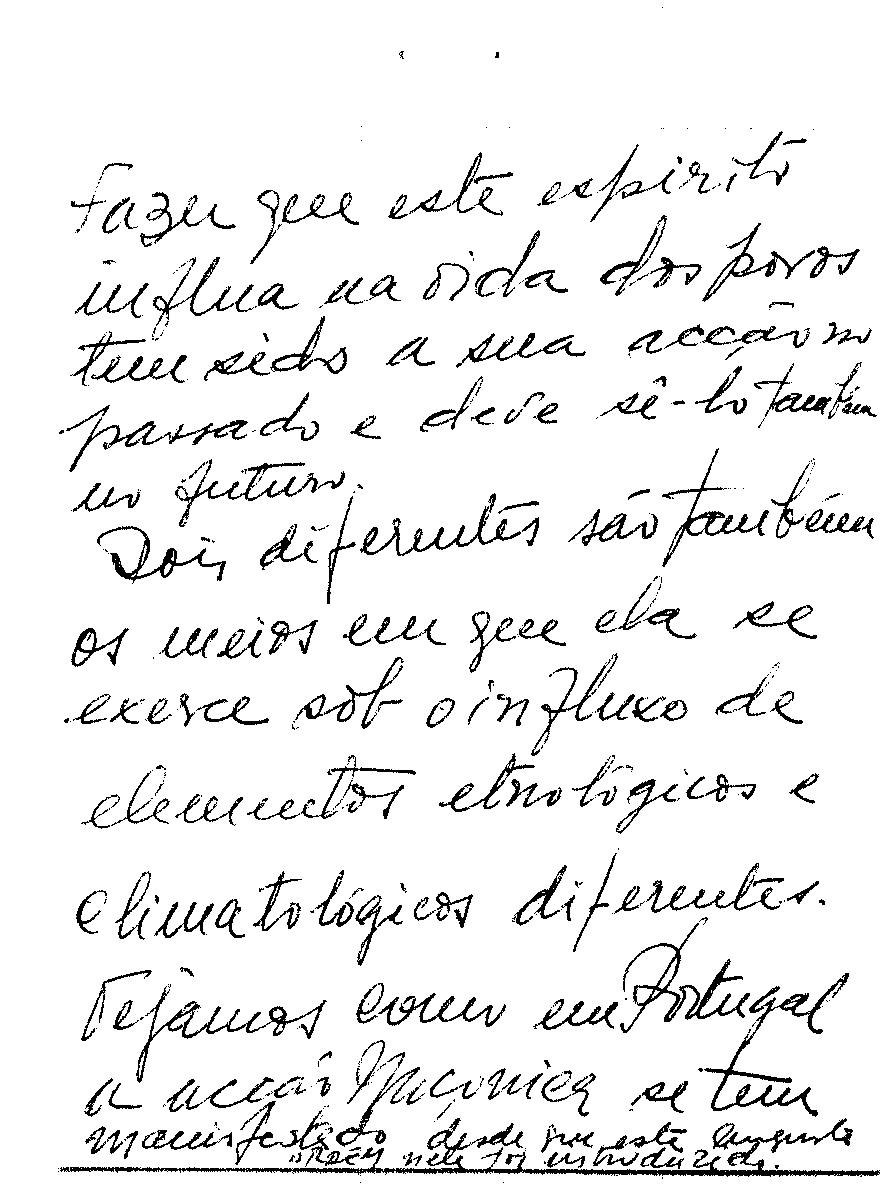 Fazer que este espirito
influa na vida dos povos
tem sido a sua acção no
passado e deve sê-lo também
no futuro.
Dois diferentes são também
os meios em que ela se
exerce sob o influxo de
elementos etnológicos e
climatológicos diferentes.
Vejamos como em Portugal
a acção Maçonica se tem
manifestado desde que esta augusta
ordem nele foi introduzida.